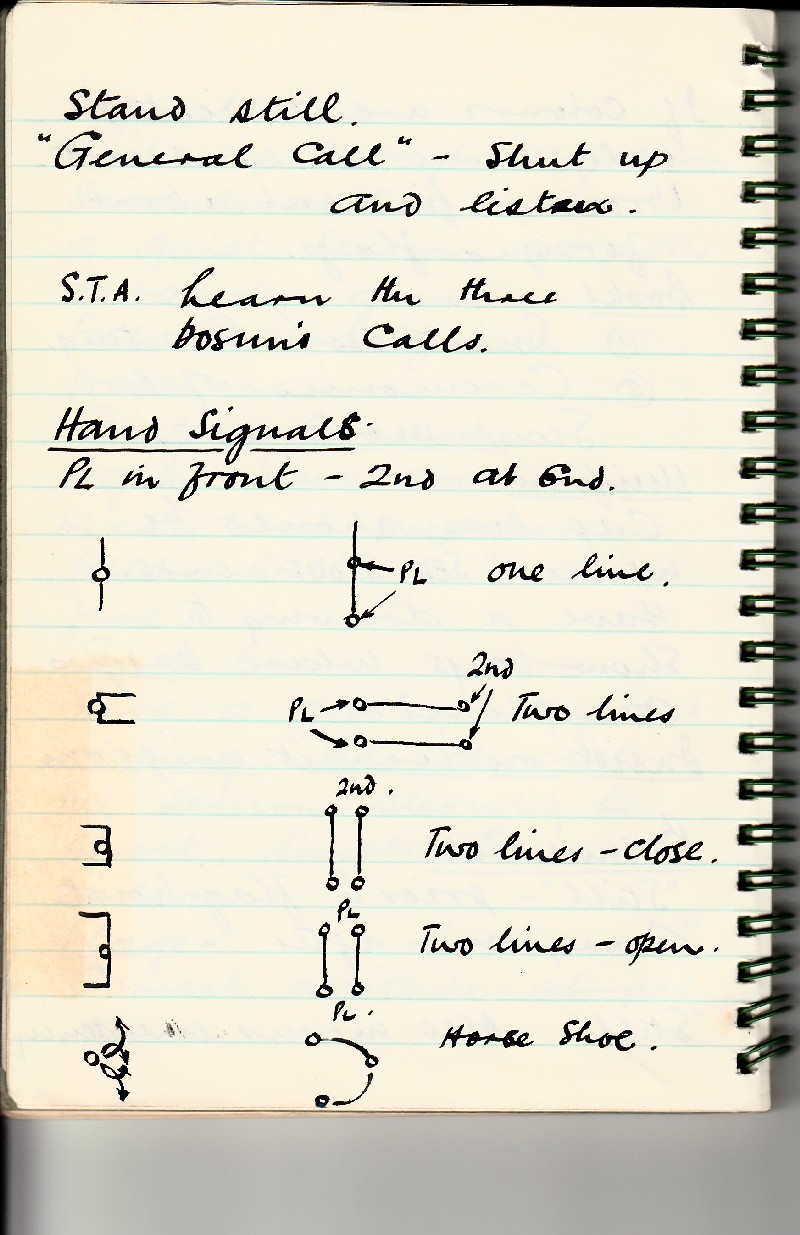 Stand still.
"General Call" - Shut up
and listen.
S.T.A. Learn the three
bosun's Calls.
Hand Signals.
PL in front - 2nd at End.
PL one line.
2nd
PL Two lines
2nd.
Two lines - close.
PL
Two lines - open.
PL.
Horse Shoe.